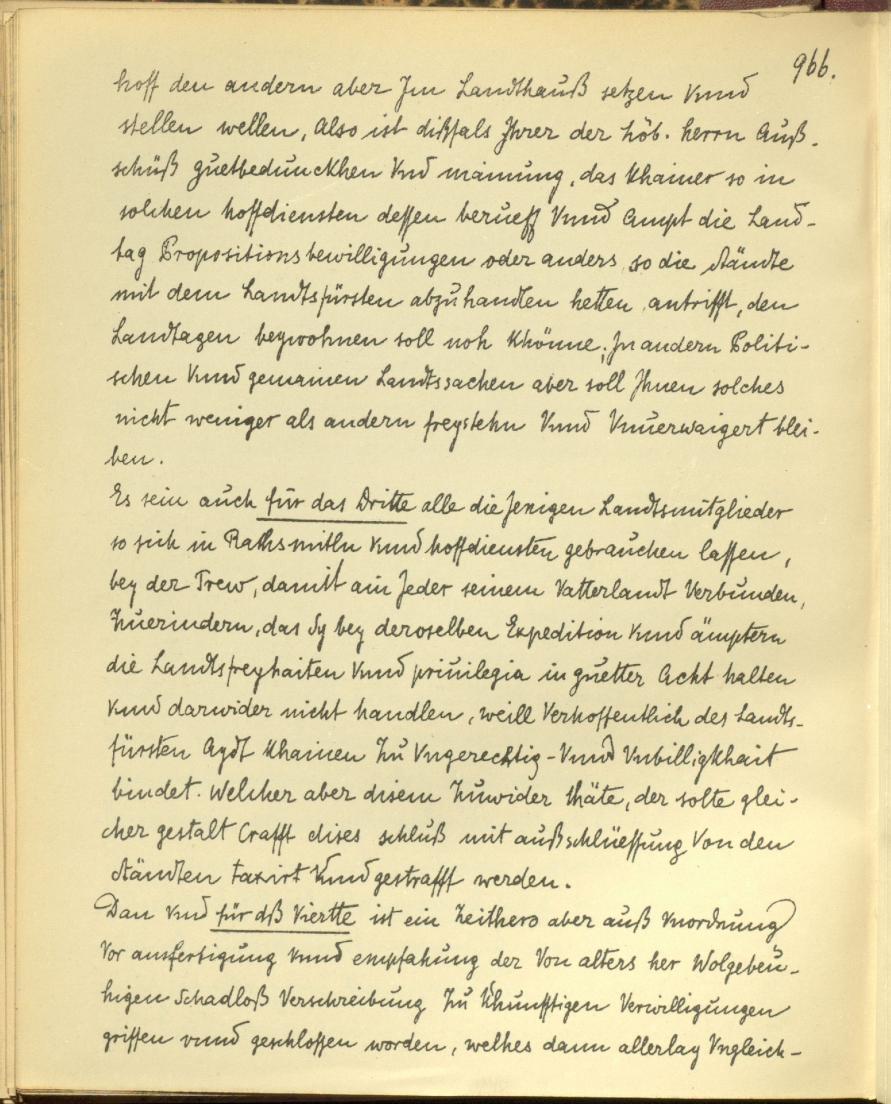 966.
hoff den andern aber Jm Landthauß setzen vnnd
stellen wellen, Also ist dißfals Jhrer der höb. herrn Auß-
schüß guetbedunckhen vnd mainung, das Khainer so in
solchen hoffdiensten dessen berueff vnnd Ampt die Land-
tag Propositions bewilligungen oder anders so die Ständte
mit dem Landtsfürsten abzuhandlen hetten antrifft, den
Landtagen beywohnen soll noh Khönne, Jn andern Politi-
schen vnnd gemainen Landtssachen aber soll Jhnen solches
nicht weniger als andern freystehn vnnd vnuerwaigert blei-
ben.
Es sein auch für das Dritte alle die Jenigen Landtsmitglieder
so sich in Rathsmitln vnnd hoffdiensten gebrauchen lassen,
bey der Trew, damit ain Jeder seinem Vatterlandt Verbunden,
Zuerindern, das Sy bey deroselben Expedition vnnd ämptern
die Landtsfreyhaiten vnnd priuilegia in guetter Acht halten
vnnd darwider nicht handlen, weill Verhoffentlich des Landts-
fürsten Aydt Khainen Zu Vngerechtig- vnnd Vnbilligkhait
bindet. Welcher aber disem Zuwider thäte, der solte glei-
cher gestalt Crafft dises schluß mit außschlüessung Von den
Ständten taxirt vnnd gestrafft werden.
Dan vnd für dß Viertte ist ein Zeithero aber auß vnordnung
Vor ausfertigung vnnd empfahung der Von alters her Wolgebeü-
higen Schadloß Verschreibung Zu Khunfftigen Verwilligungen
griffen vnnd geschlossen worden, welhes dann allerlay Vngleich-